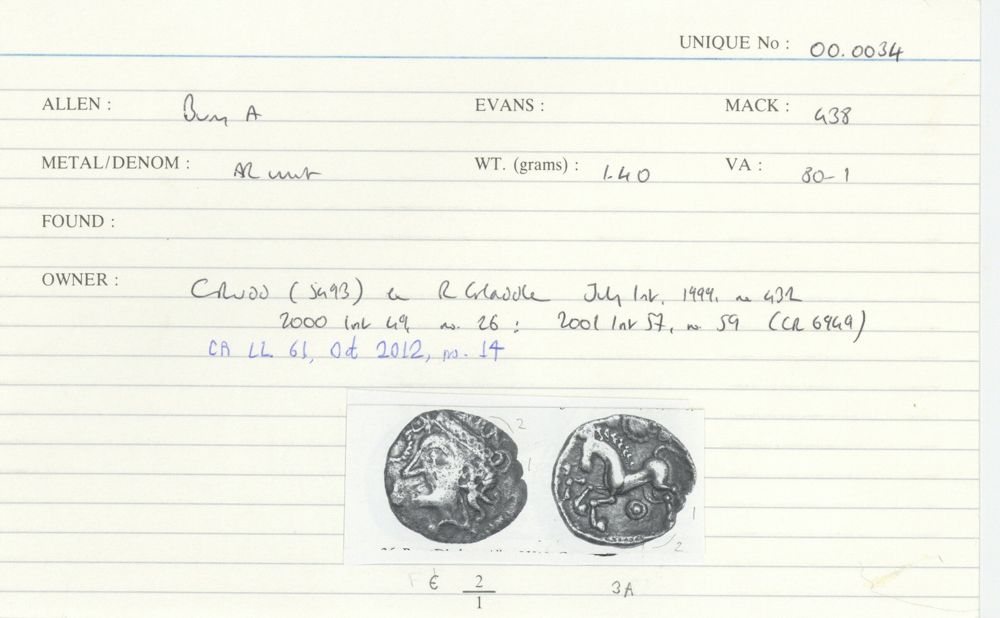 UNIQUE No : 00.0034
ALLEN : Bury A EVANS : MACK : 438
METAL/DENOM : AR unit WT. (grams) : 1.40 VA : 80-1
FOUND :
OWNER : CRUDD (5493) ex R Gladdle July Int. 1999, no 432
2000 Int 49, no. 26 : 2001 Int 57, no. 59 (CR 6949)
CR LL 61, Oct 2012, no. 14
2
1
1
2
€ 2/1 3A